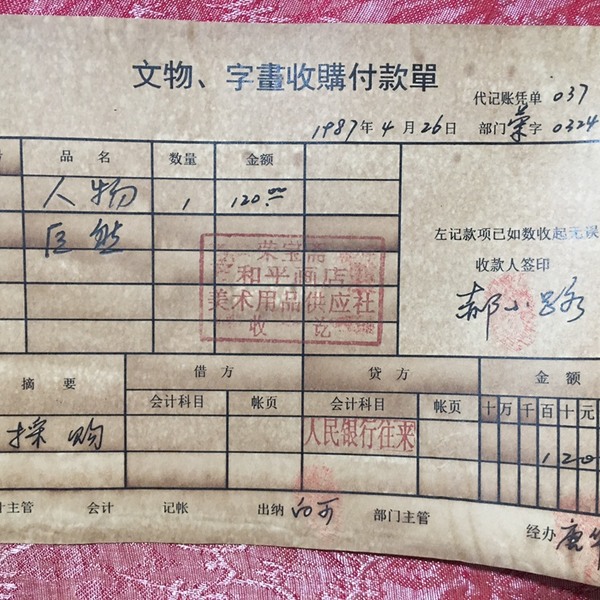 文物、字畫收購付款單
代记账凭单 037
1987年4月26日 部门荣字 0324
品名 数量 金额
人物 1 120.00
巨然
左记款项已如数收起无误
荣宝斋
和平商店
美术用品供应社
收讫
收款人签印
郝小路
摘要 借方 贷方 金额
会计科目 帐页 会计科目 帐页 十万千百十元
採购 人民银行往来 120
计主管 会计 记帐 出纳 部门主管
经办 唐华